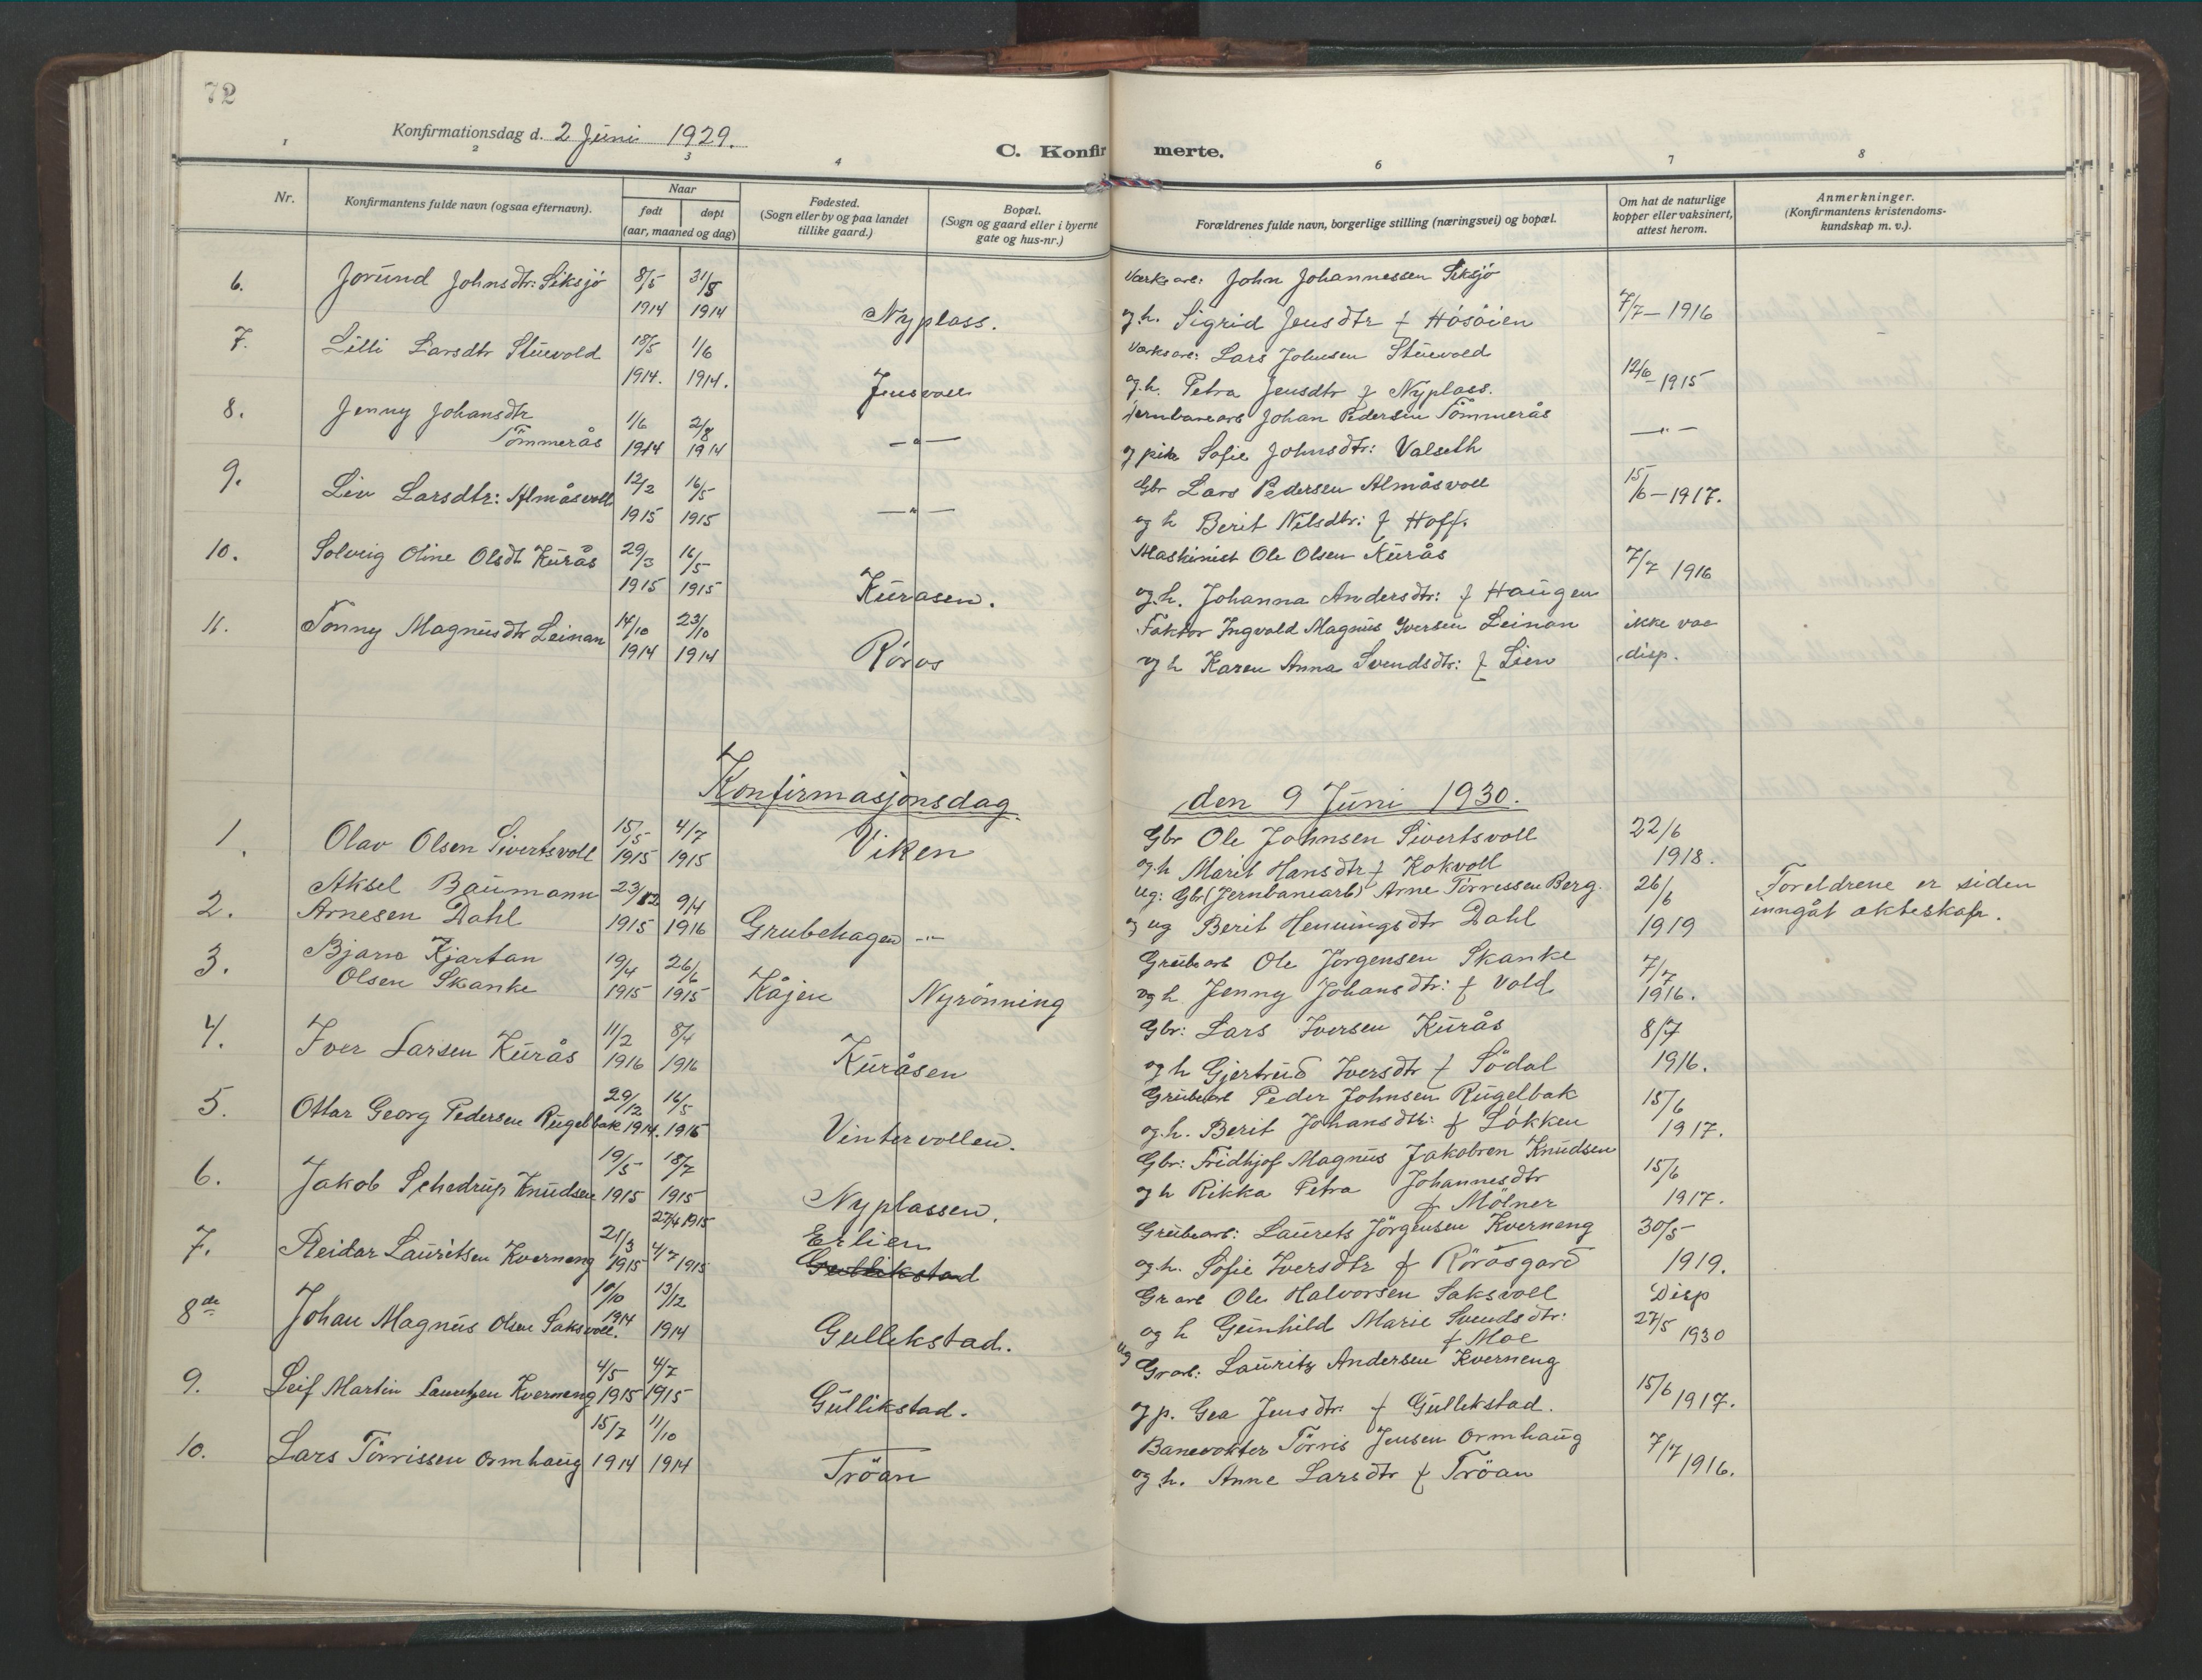 72
Konfirmationsdag d. 2 Juni 1929.
C. Konfirmerte.
1 2 3 4 6 7 8
Nr.
Konfirmantens fulde navn (ogsaa efternavn).
Naar
født døpt
(aar, maaned og dag)
Fødested.
(Sogn eller by og paa landet
tillike gaard.)
Bopæl.
(Sogn og gaard eller i byerne
gate og hus-nr.)
Forældrenes fulde navn, borgerlige stilling (næringsvei) og bopæl.
Om hat de naturlige
kopper eller vaksinert,
attest herom.
Anmerkninger.
(Konfirmantens kristendoms-
kundskap m. v.).
6. Jorund Johnsdtr: Siksjö 8/5 31/5 Verks arb: John Johannessen Siksjö
1914 1914 Nyplass. og h. Sigrid Jensdtr f Hösöien 7/7 - 1916
7. Lilli Larsdtr Stuevold 18/5 1/6 Verksarb: Lars Johnsen Stuevold
1914. 1914. Jensvoll og h. Petra Jensdtr f Nyplass. 12/6 - 1915
8. Jenny Johansdtr 1/6 2/8 Jernbanearb Johan Pedersen Tömmerås
Tömmerås 1914 1914 —"— og pike Sofie Johnsdtr: Valseth —"—
9. Liv Larsdtr: Almåsvoll 12/2 16/5 Gbr Lars Pedersen Almåsvoll 15/6 - 1917.
1915 1915 —"— og h Berit Nilsdtr: f Hoff.
10. Solveig Oline Olsdt Kurås 29/3 16/5 Maskinist Ole Olsen Kurås 7/7 1916
1915 1915 Kuråsen. og h. Johanna Andersdtr: f Haugen
11. Tonny Magnusdtr Leinan 14/10 23/10 Faktor Ingvald Magnus Iversen Leinan ikke vac
1914 1914 Röros og h Karen Anna Svendsdtr: f Lien disp.
Konfirmasjonsdag den 9 Juni 1930.
1. Olav Olsen Sivertsvoll 15/5 4/7 Viken Gbr Ole Johnsen Sivertsvoll 22/6
1915 1915 og h Marit Hansdtr f Kokvoll 1918.
2. Aksel Baumann 23/12 9/4 ug: Gbr (Jernbanearb) Arne Törressen Berg. 26/6 Foreldrene er siden
Arnesen Dahl 1915 1916 Grubehagen —"— og ug Berit Henningsdtr Dahl 1919 inngåt ekteskap.
3. Bjarne Kjartan 19/4 26/6 Grubearb Ole Jörgensen Skanke 7/7
Olsen Skanke 1915 1915 Kåjen Nyrönning og h. Jenny Johansdtr: f Vold 1916.
4. Iver Larsen Kurås 11/2 8/4 Gbr: Lars Iversen Kurås 8/7
1916 1916 Kuråsen og h Gjertrud Iversdtr f Södal 1916.
5. Ottar Georg Pedersen Rugelbak 29/12 16/5 Grubearb Peder Johnsen Rugelbak 15/6
1914. 1915 Vintervollen. og h. Berit Johansdtr: f Lökken 1917.
6. Jakob Schedrup Knudsen 19/5 18/7 Gbr: Fridtjof Magnus Jakobsen Knudsen 15/6
1915 1915 Nyplassen. og h Rikka Petra Johannesdtr 1917.
f Mölner
7. Reidar Lauritsen Kverneng 21/3 27/4 1915 Erlien Grubearb: Laurets Jörgensen Kverneng 30/5
1915 4/7 1915 Gullikstad og h. Sofie Iversdtr f Rörosgard 1919.
8de Johan Magnus Olsen Saksvoll. 10/10 13/12 Gr arb Ole Halvorsen Saksvoll Disp
1914 1914 Gullikstad. og h Gunhild Marie Svendsdtr: 27/5 1930
f Moe
9. Leif Martin Lauritzen Kverneng 4/5 4/7 ug Gr arb: Lauritz Andersen Kverneng
1915 1915 Gullikstad. og p. Gea Jensdtr f Gullikstad. 15/6 1917.
10. Lars Törrissen Ormhaug 15/7 11/10 Banevokter Törris Jensen Ormhaug 7/7
1914 1914 Tröan og h. Anne Larsdtr f Tröan 1916.